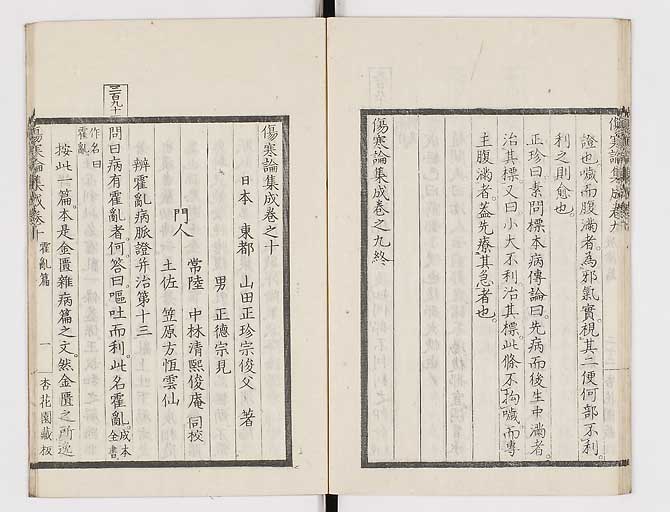 傷寒論集成卷九
證也噦而腹滿者。為邪氣實。視其二便何部不利。
利之則愈也。
正珍曰素問標本病傳論曰。先病而後生中滿者。
治其標又曰小大不利治其標。此條不拘噦。而專
主腹滿者。蓋先療其急者也。
傷寒論集成卷之九終
傷寒論集成卷之十
日本 東都 山田正珍宗俊父 著
男 正德宗見
門人
常陸 中林清熙俊庵 同校
土佐 笠原方恆雲仙
辨霍亂病脈證并治第十三
三百九十
問曰病有霍亂者何。答曰嘔吐而利。此名霍亂。成本全書
作名曰霍亂
按此一篇。本是金匱雜病篇之文。然金匱之所逸
傷寒論集成卷十 霍亂篇 一 杏花園藏板